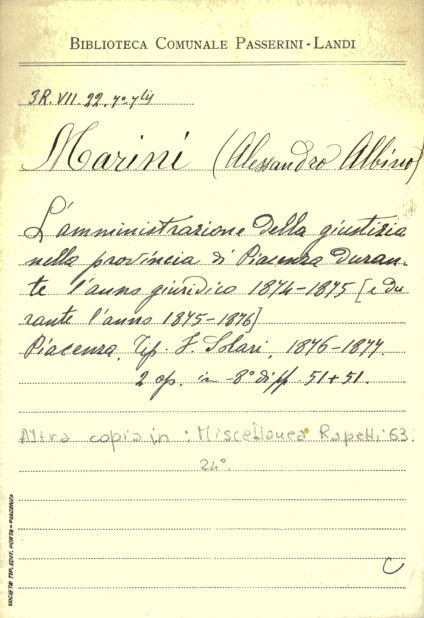 BIBLIOTECA COMUNALE PASSERINI-LANDI
3R.VII.22, 7º-
Marini (Alessandro Albino)
L'amministrazione della giustizia
nella provincia di Piacenza duran-
te l'anno giuridico 1874-1875 [e du
rante l'anno 1875-1876]
Piacenza, Tip. F. Solari, 1876-1877.
2 op. in -8º di pp. 51+51.
Altra copia in: Miscellanea Rapetti 63.
24º.
C
SOCIETÀ TIP. EDIT. PORTA - PIACENZA